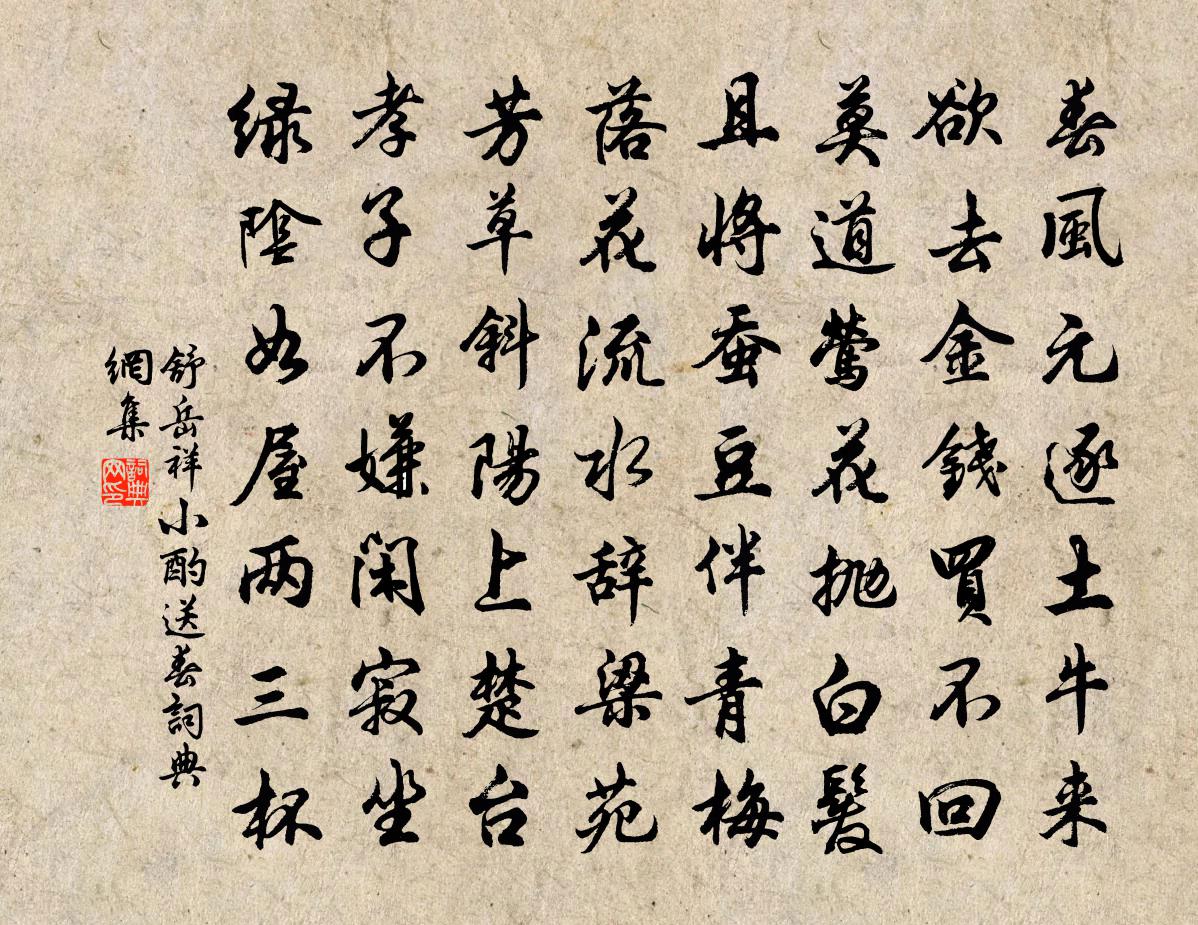 春風元逐土牛来
欲去金錢買不回
莫道鶯花抛白髮
且將蚕豆伴青梅
落花流水辞梁苑
芳草斜陽上楚台
孝子不嫌闲寂坐
绿陰如屋两三杯
舒岳祥小酌送春詞典
網集
詞典
网印